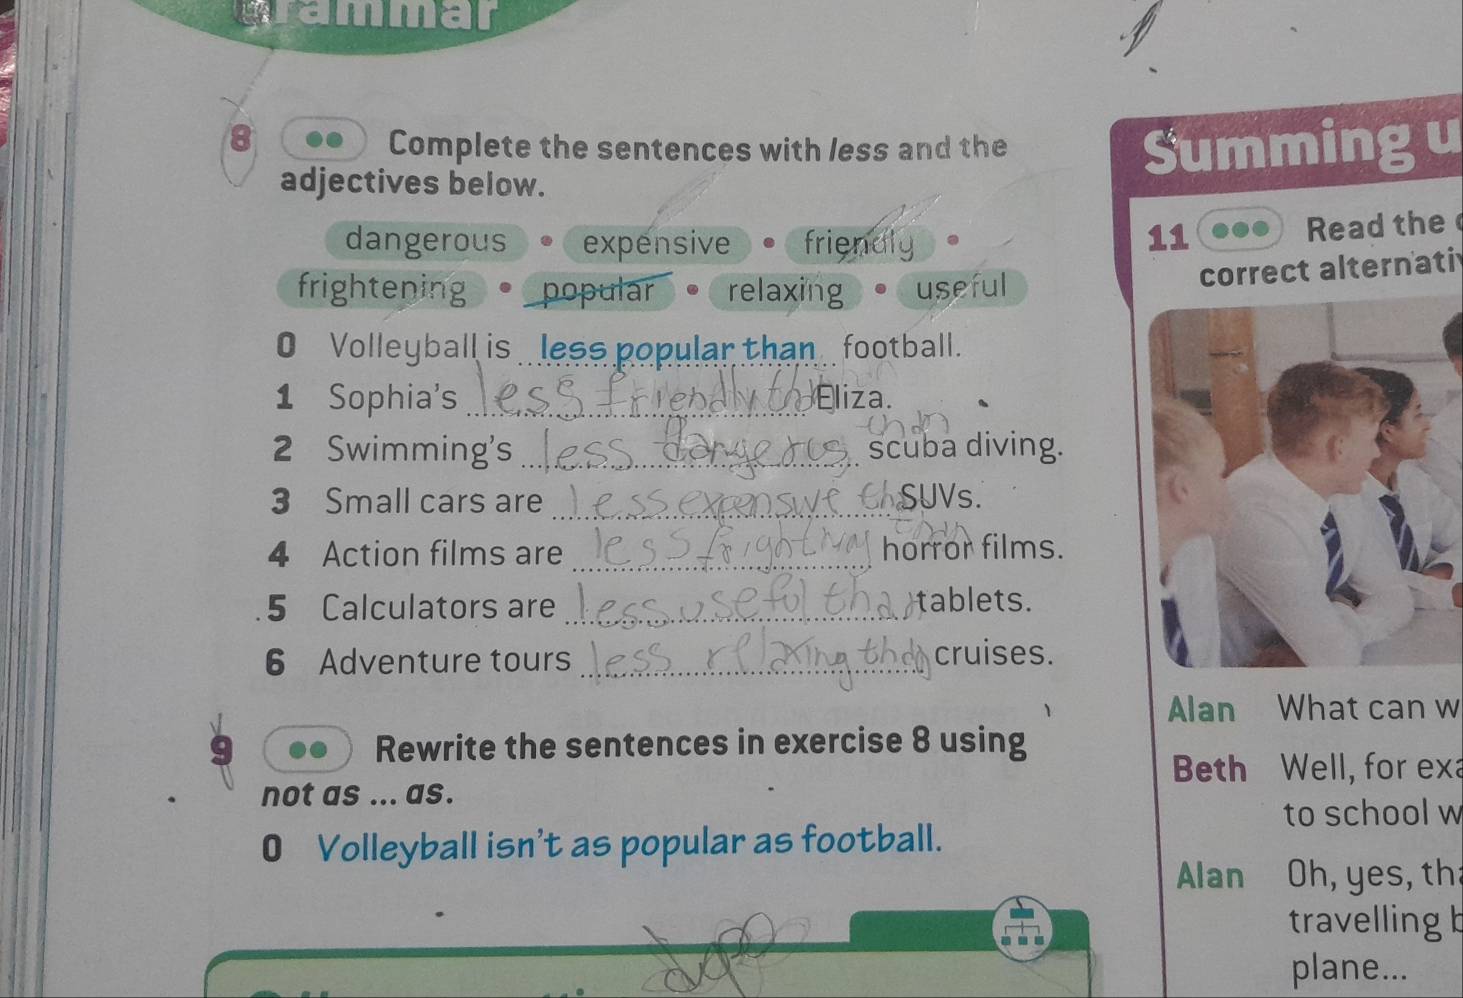 Grammar
8 Complete the sentences with less and the
adjectives below.
dangerous • expensive • friendly •
frightening • popular • relaxing • useful
0 Volleyball is less popular than football.
1 Sophia's less friendly than Eliza.
2 Swimming's less dangerus than scuba diving.
3 Small cars are less expensive than SUVs.
4 Action films are less than horror films.
5 Calculators are less useful than tablets.
6 Adventure tours less relaxing than cruises.
9 Rewrite the sentences in exercise 8 using
not as ... as.
0 Volleyball isn't as popular as football.
Summing u
11 Read the
correct alternati
Alan What can w
Beth Well, for exa
to school w
Alan Oh, yes, tha
travelling b
plane...